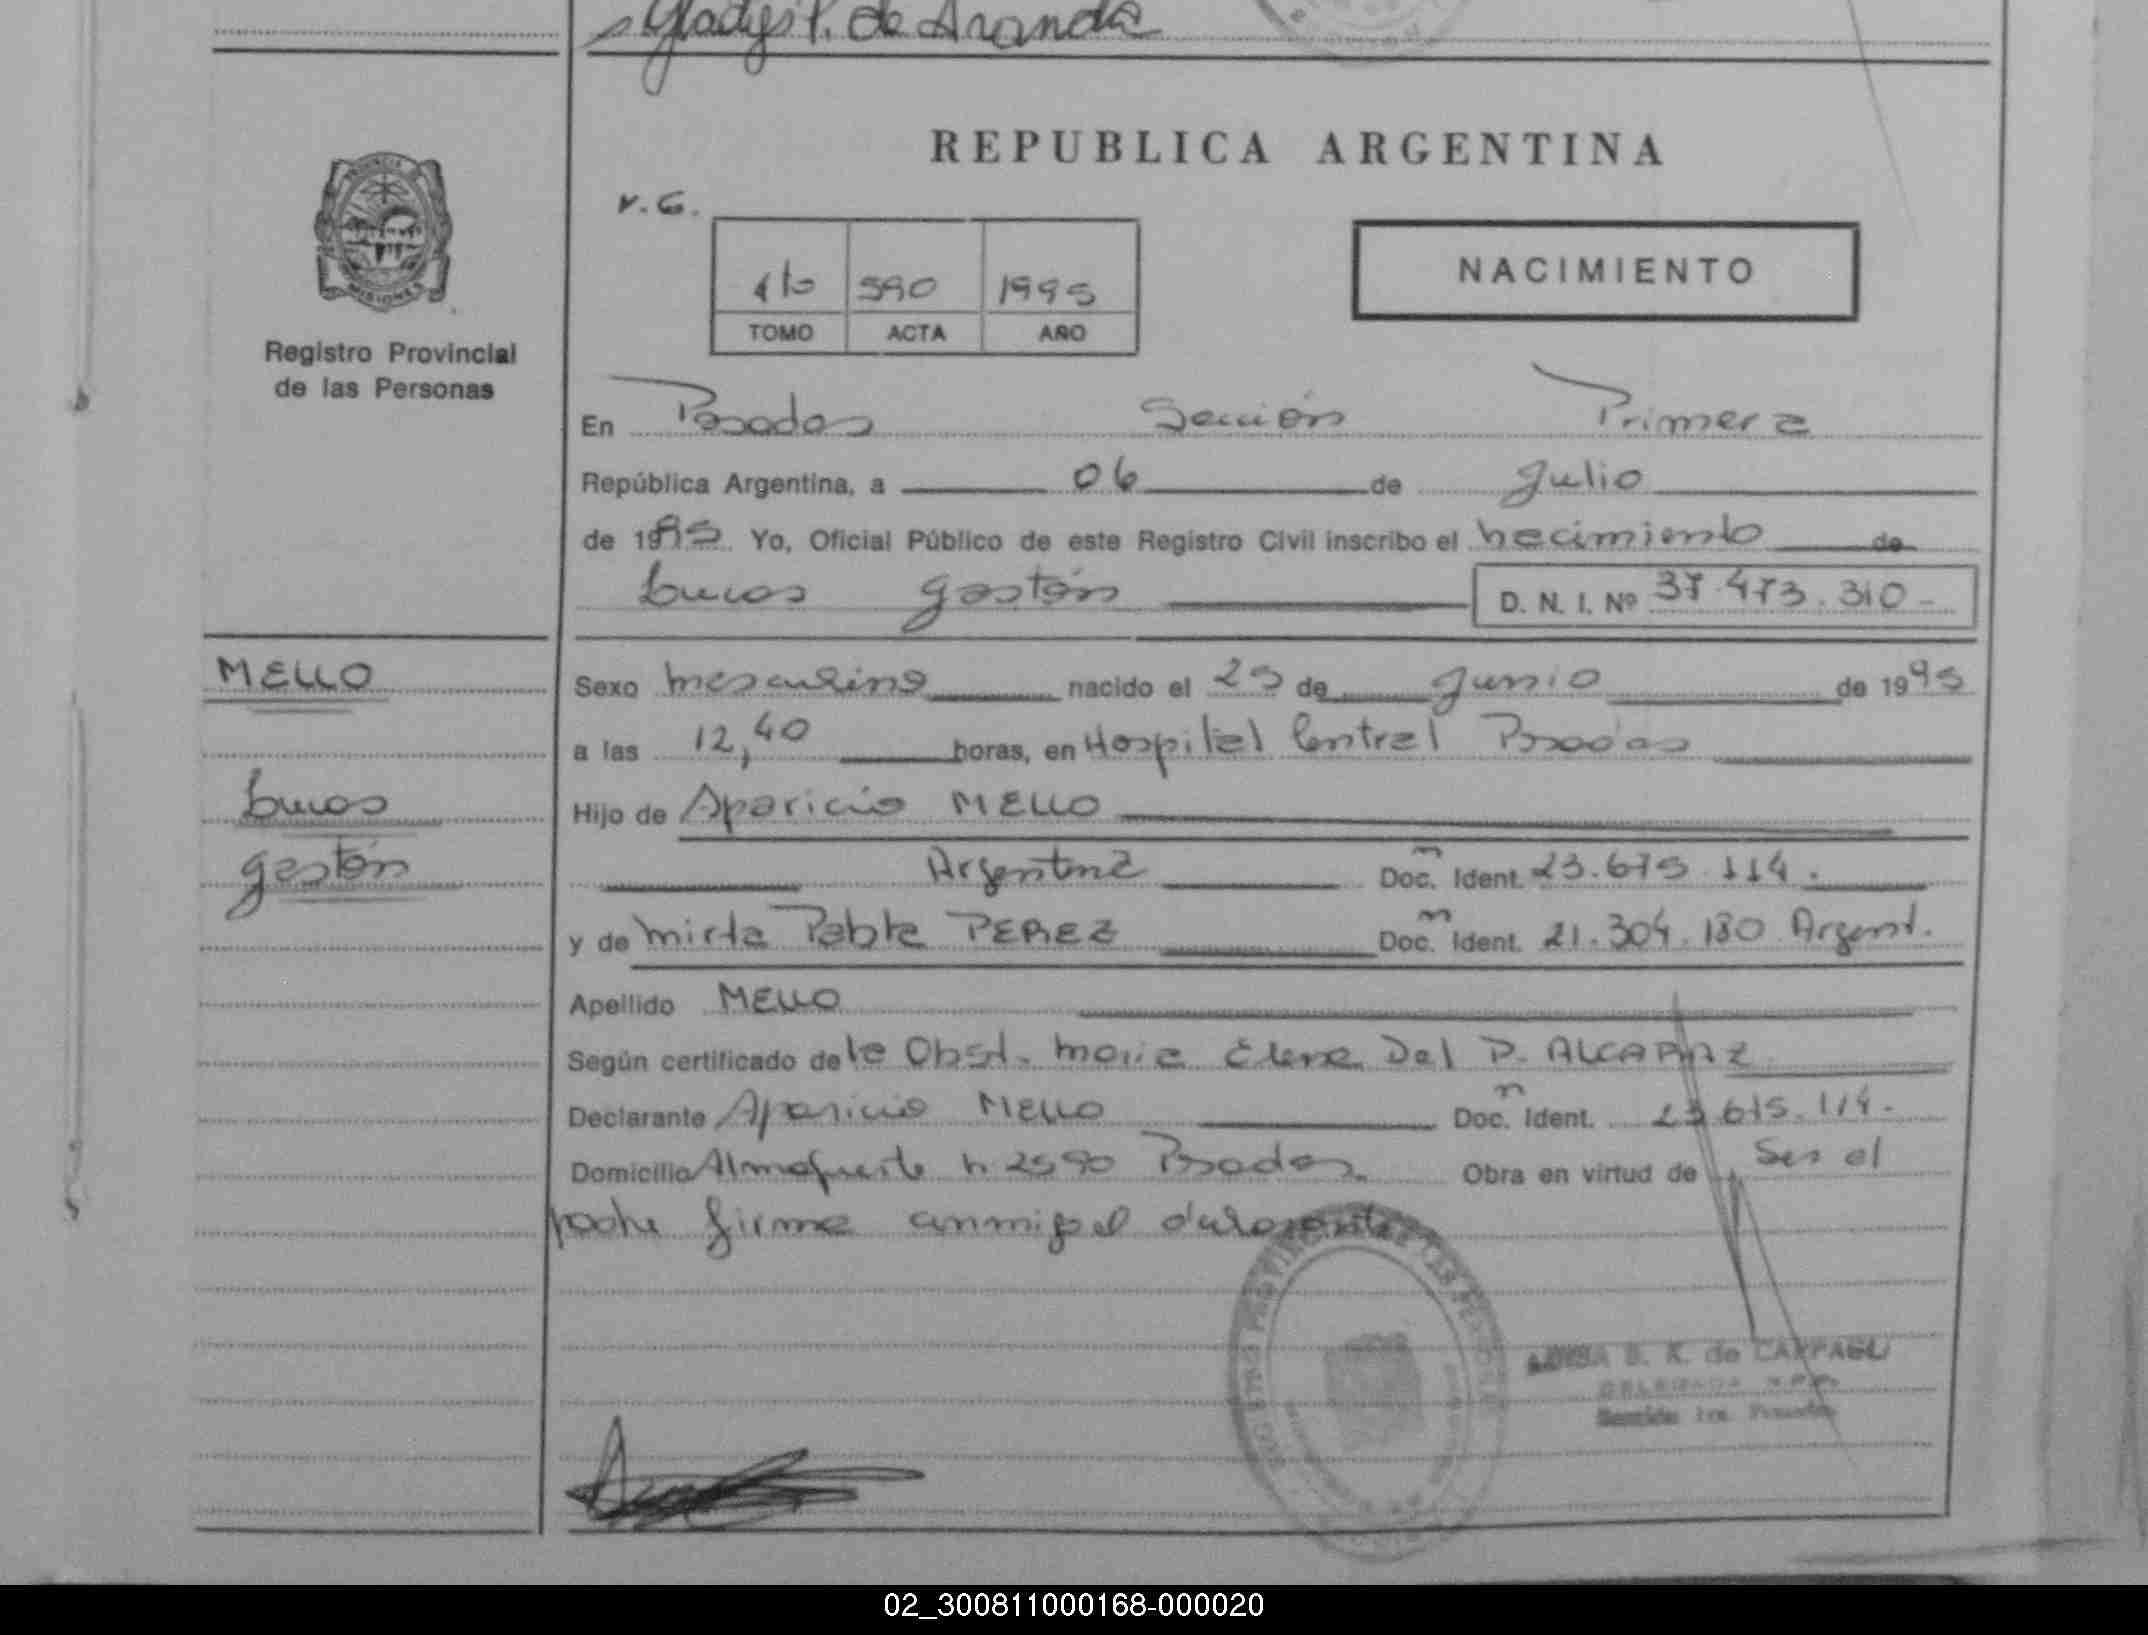 Gladys P. de Aranda
REPUBLICA ARGENTINA
V.G.
PROVINCIA
MISIONES
590 1995
TOMO ACTA AÑO
NACIMIENTO
Registro Provincial
de las Personas
En Posadas Sección Primera
República Argentina, a 06 de Julio
de 1995 Yo, Oficial Público de este Registro Civil inscribo el nacimiento de
Lucas Gastón D. N. I. Nº 37.473.310-
MELLO
Sexo masculino nacido el 25 de Junio de 1995
a las 12,40 horas, en Hospital Central Posadas
Lucas
Hijo de Aparicio MELLO
Gastón
Argentina Doc. Ident. 23.675.114.
y de Mirta Pabla PEREZ Doc. Ident. 21.304.180 Argent.
Apellido MELLO
Según certificado de la Obst. Maria Elena Del P. ALCARAZ
Declarante Aparicio MELLO Doc. Ident. 23.675.114.
Domicilio Almafuerte n 2590 Posadas. Obra en virtud de Ser el
padre firma conmigo el declarante
B. K. de CARPAGLI
DELEGADA
02_300811000168-000020